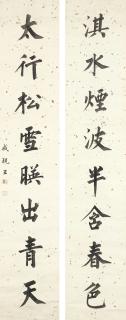 淇水煙波半含春色
太行松雪暎出青天
成親王